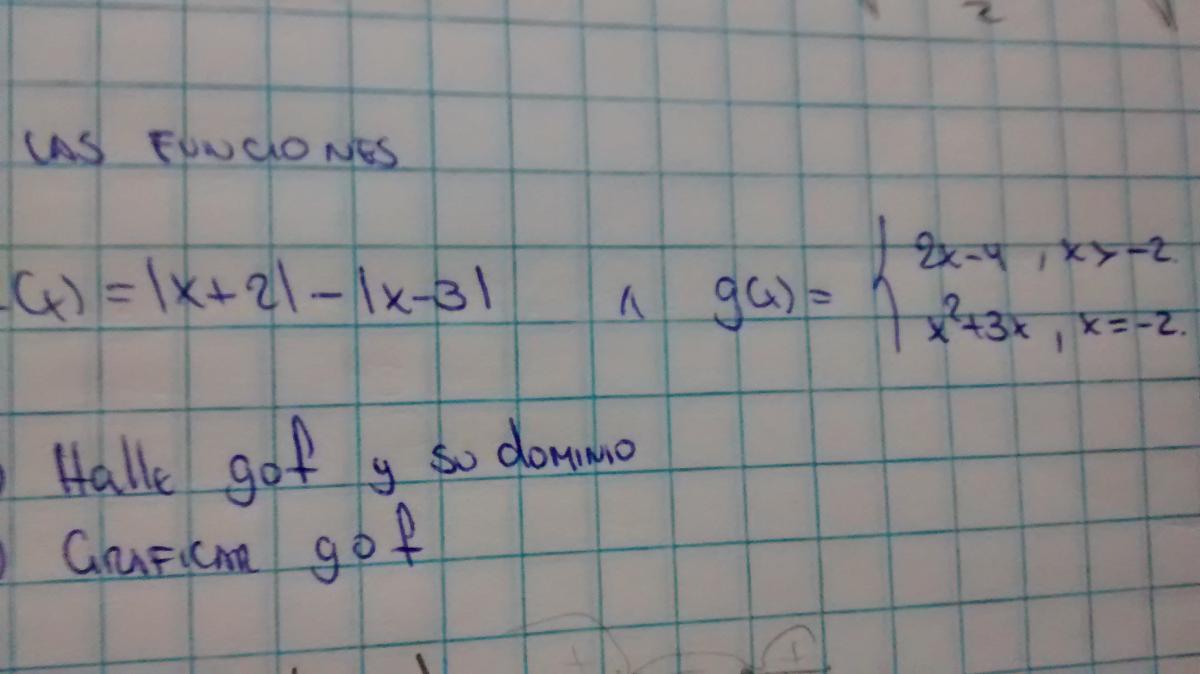 LAS FUNCIONES
(x) = |x+2| - |x-3| ∧ g(x) = { 2x-4 , x > -2.
x²+3x , x = -2.
) Halle gof y su dominio
) Graficar gof